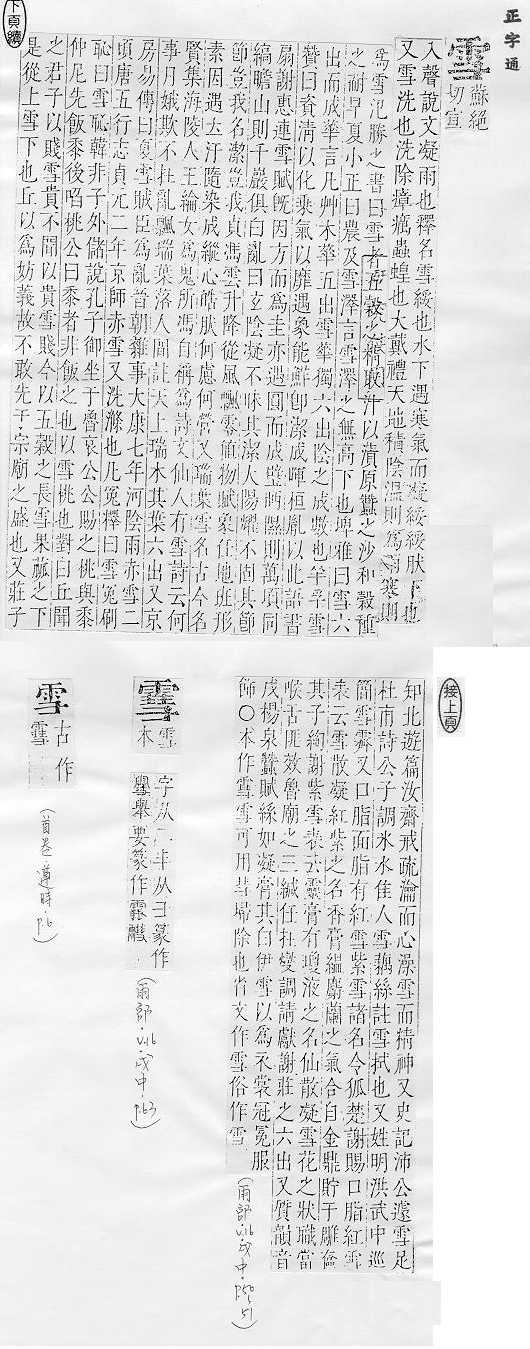 正字通
下頁續
雪
蘇絕
切宣
入聲說文凝雨也釋名雪綏也水下遇寒氣而凝綏綏肰下也
又雪洗也洗除瘴癘蟲蝗也大戴禮天地積陰溫則為雨寒則
為雪氾勝之書曰雪者五穀之精取汁以漬原蠶之沙和穀種
之耐旱夏小正曰農及雪澤言雪澤之無高下也埤雅曰雪六
出而成華言凡艸木華五出雪華獨六出陰之成數也羊孚雪
贊曰資清以化乘氣以霏遇象能鮮卽潔成暉桓胤以此語書
扇謝惠連雪賦旣因方而為圭亦遇圓而成璧眄隰則萬頃同
縞瞻山則千巖俱白亂曰玄陰凝不昧其潔太陽耀不固其節
節豈我名潔豈我貞馮雲升降從風飄零値物賦象任地班形
素因遇立汙隨染成縱心皓肰何慮何營又瑞葉雪名古今名
賢集海陵人王綸女為鬼所馮自稱為詩文仙人有雪詩云何
事月娥欺不在亂飄瑞葉落人間註天上瑞木其葉六出又京
房易傳曰夏雪賊臣為亂晉朝雜事大康七年河陰雨赤雪二
頃唐五行志貞元二年京師赤雪又洗滌也凡冤釋曰雪冤刷
恥曰雪恥韓非子外儲說孔子御坐于魯哀公公賜之桃與黍
仲尼先飯黍後啗桃公曰黍者非飯之也以雪桃也對曰丘聞
之君子以賤雪貴不聞以貴雪賤今以五穀之長雪果蓏之下
是從上雪下也丘以為妨義故不敢先于宗廟之盛也又莊子
接上頁
知北遊篇汝齋戒疏瀹而心澡雪而精神又史記沛公遽雪足
杜甫詩公子調冰水佳人雪藕絲註雪拭也又姓明洪武中巡
簡雪霽又口脂面脂有紅雪紫雪諸名令狐楚謝賜口脂紅雪
表云雪散凝紅紫之名香膏縕麝蘭之氣合自金鼎貯于雕奩
其子綯謝紫雪表云靈膏有瓊液之名仙散凝雪花之狀職當
喉舌匪效魯廟之三緘任在變調請獻謝莊之六出又質韻音
戌楊泉蠶賦絲如凝膏其白伊雪以為衣裳冠冕服
飾○本作䨮雪可用彗埽除也省文作雪俗作雪
(雨部‧vol6‧戌中‧p50~51)
雪
本
字从
作
舉要篆作
(雨部‧vol6‧戌中‧p.63)
雪
古作
(首卷‧遵時‧p.6)